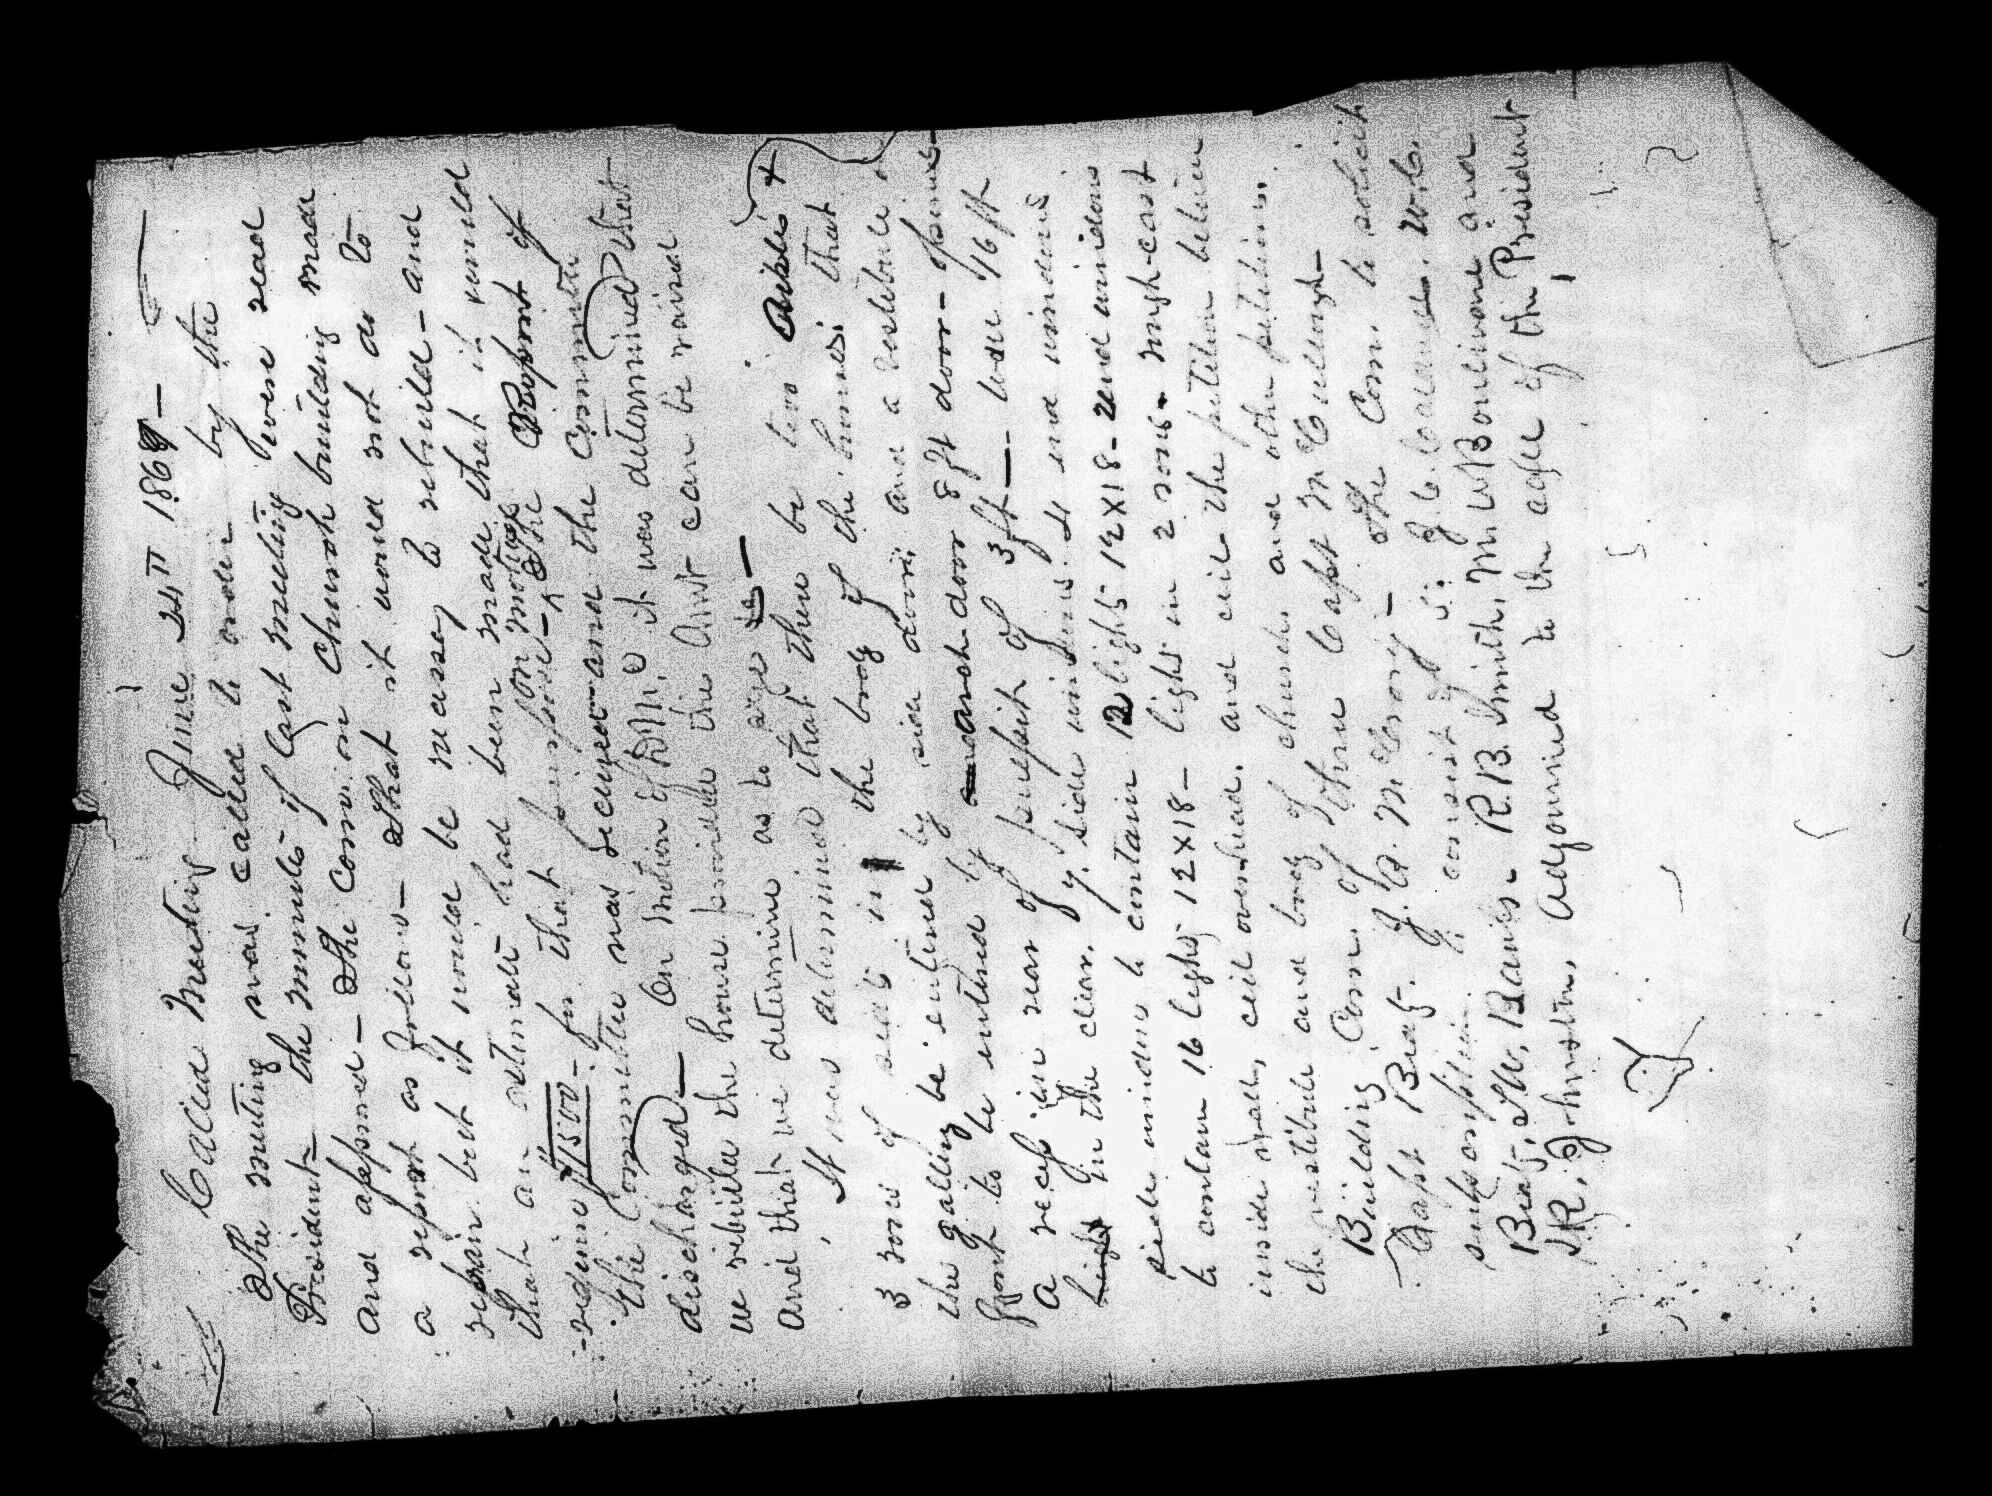 Called Meeting June 24th 1869 —
The meeting was called to order by the
President — the minutes of last meeting were read
and approved — The Com. on Church building made
a report as follows — That it would not do to
repair but it would be necessary to rebuild — and
that an estimate had been made that it would
require $1500 — for that purpose — On motion The Report of
the Committee was received and the Committee
discharged — On motion of D M. C it was determined that
we rebuild the house provided the Amt can be raised
and that we determine as to size &c —
It was determined that there be two aisles &
3 rows of seats in the body of the house that
the gallery be entered by side doors and a vestibule in
front to be entered by an arch door 8 ft door — Spaces
a recess in rear of pulpit of 3 ft — wide 16 ft
hight in the clear. 4 side windows. 4 end windows
side windows to contain 12 lights 12 x 18 — end windows
to contain 16 lights 12 x 18 — lights in 2 rows — rough-cast
inside walls, ceil overhead. and ceil the petition between
the vestibule and body of church and other petitions.
Building Com. of three Capt McCullough —
Capt Beaty. J. A. McCrory — The Com. to solicit
subscription to consist of 5: J. C. W. C.
Beaty, S W. Banks. R. B. Smith, M. W. Boulware and
J R. Johnston. Adjourned to the call of the President